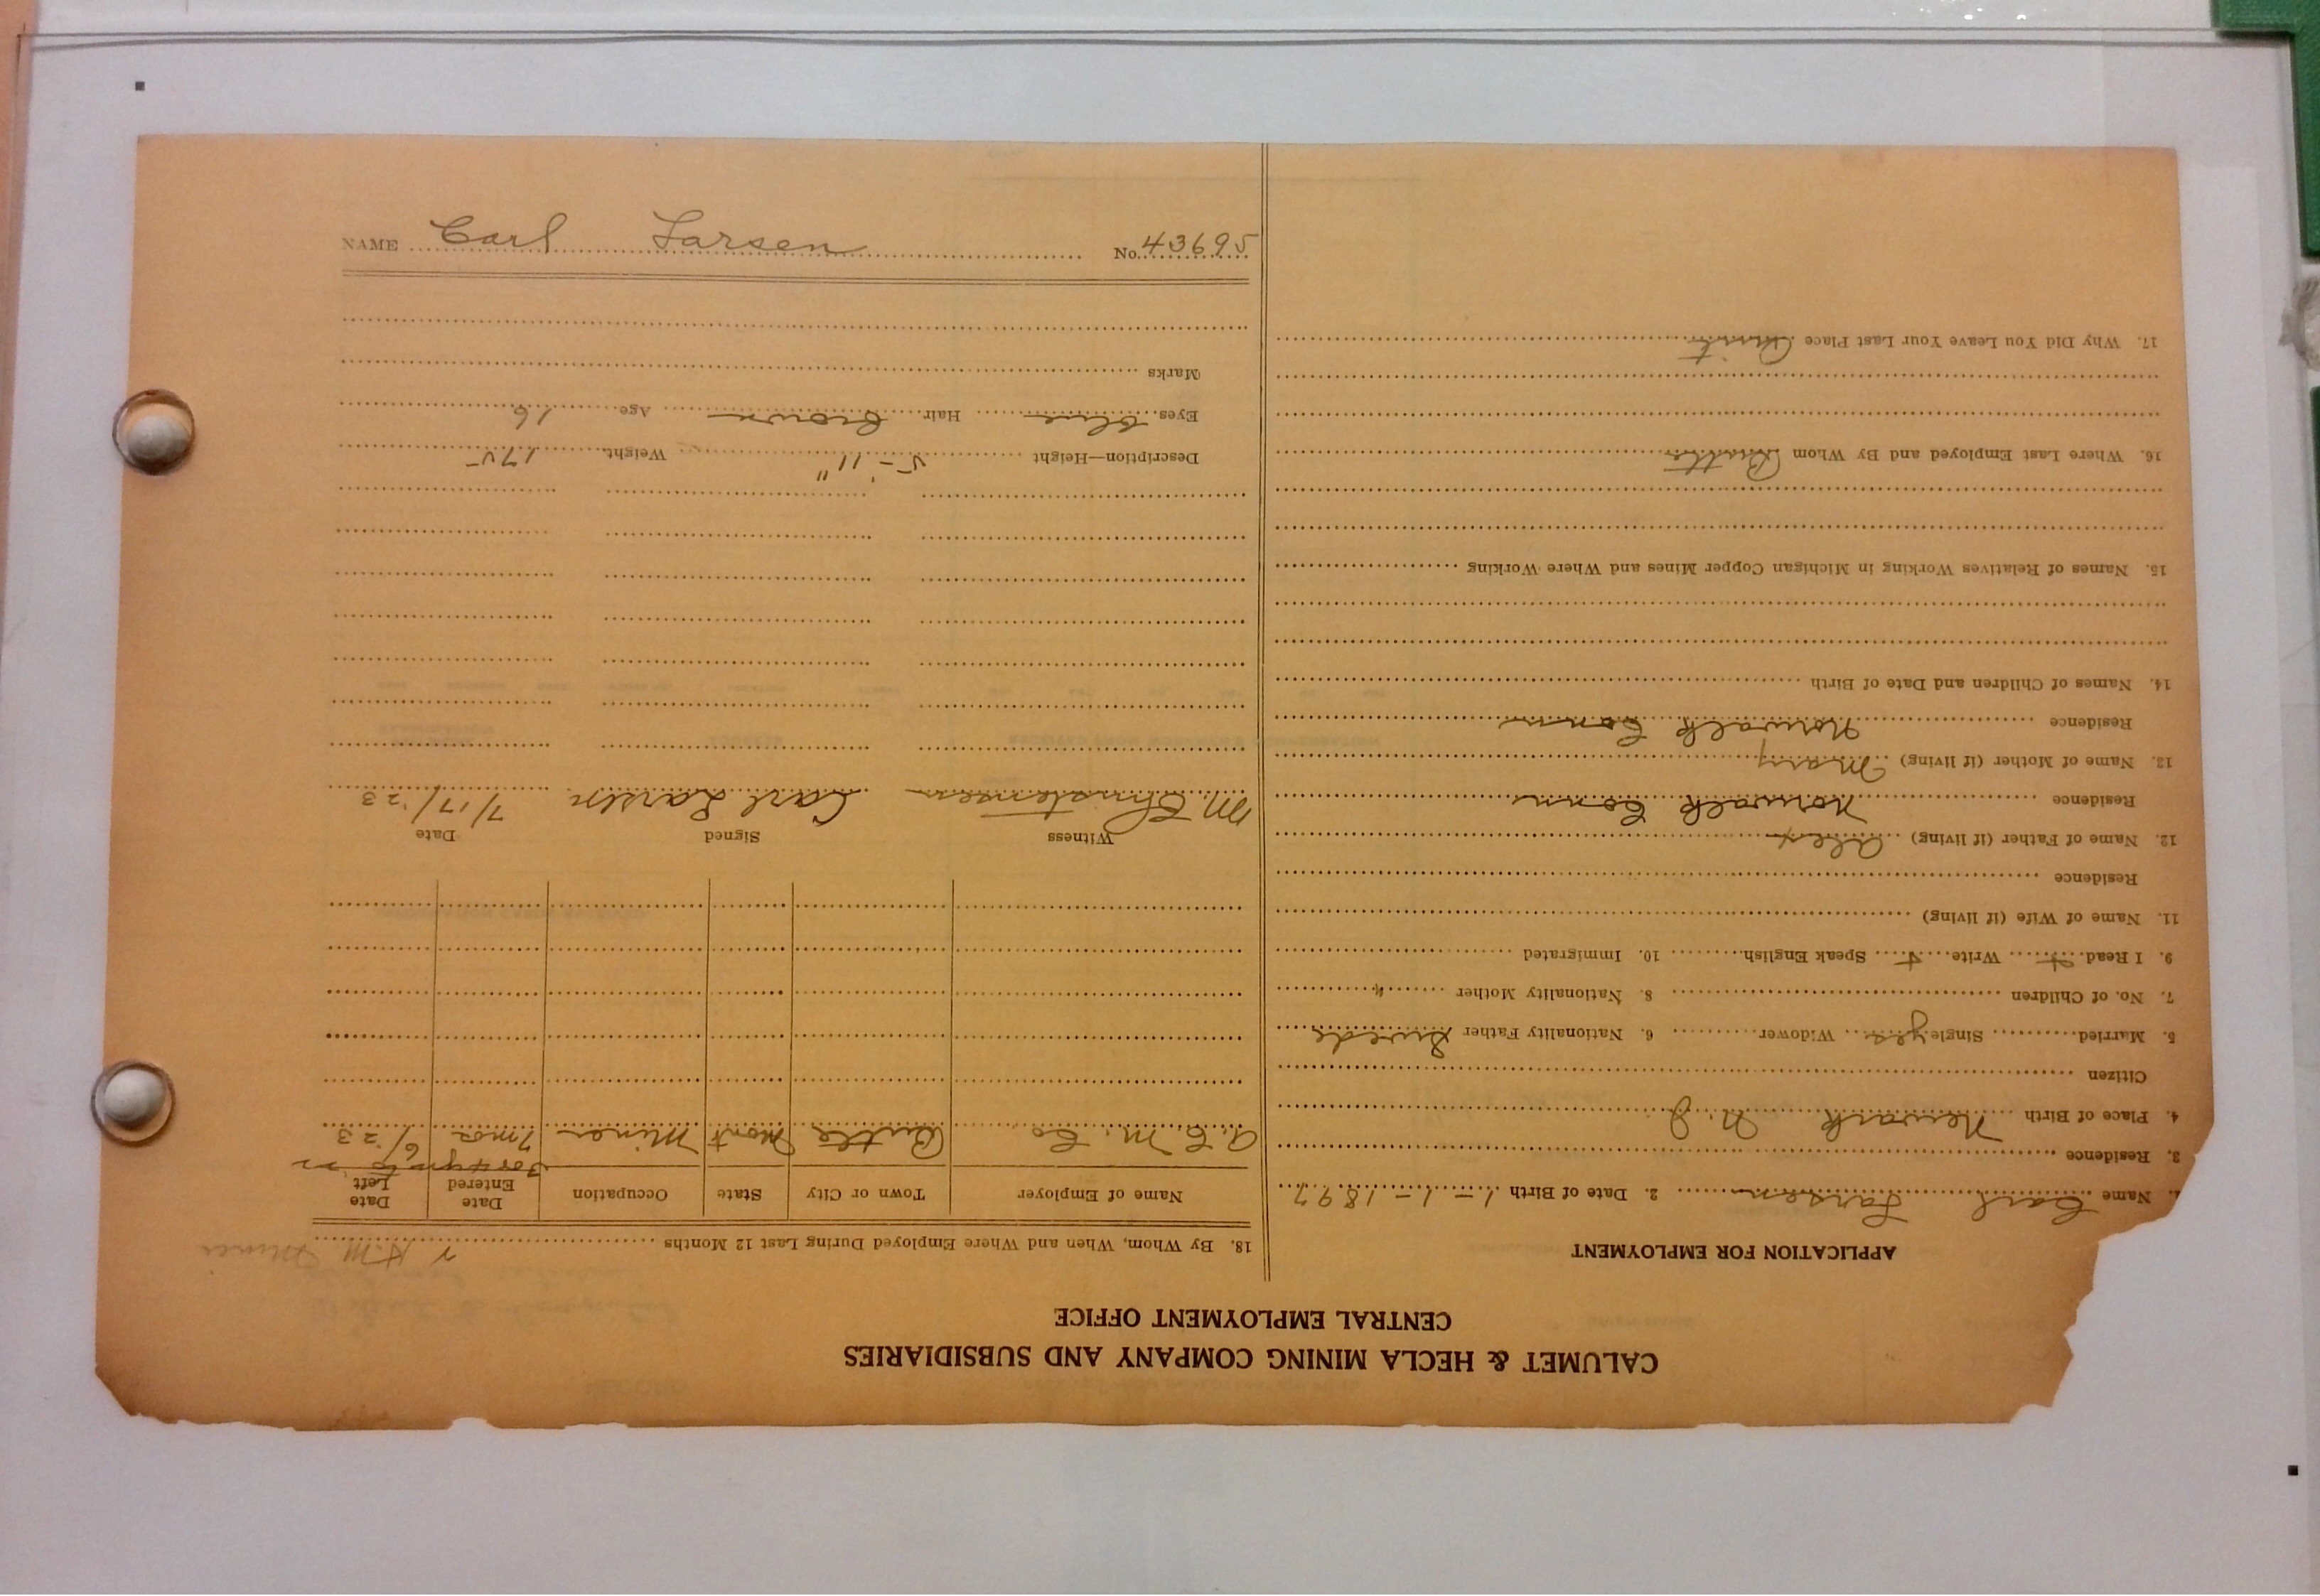 CALUMET & HECLA MINING COMPANY AND SUBSIDIARIES
CENTRAL EMPLOYMENT OFFICE
APPLICATION FOR EMPLOYMENT
1. Name Carl Larsen 2. Date of Birth 1-1-1897
3. Residence
4. Place of Birth Newark N.J.
Citizen
5. Married Single yes Widower 6. Nationality Father Swede
7. No. of Children 8. Nationality Mother "
9. I Read Write Speak English 10. Immigrated
11. Name of Wife (if living)
Residence
12. Name of Father (if living) Alex
Residence Norwalk Conn
13. Name of Mother (if living) Mary
Residence Norwalk Conn
14. Names of Children and Date of Birth
15. Names of Relatives Working in Michigan Copper Mines and Where Working
16. Where Last Employed and By Whom Butte
17. Why Did You Leave Your Last Place Quit
18. By Whom, When and Where Employed During Last 12 Months
Miner
Name of Employer Town or City State Occupation Date Entered Date Left
A.C.M. Co Butte Mont Miner 7 mos 6/23
Witness Signed Date
M. Christensen Carl Larsen 7/17/23
Description—Height 5-11" Weight 175
Eyes Blue Hair Brown Age 16
Marks
NAME Carl Larsen No. 43695